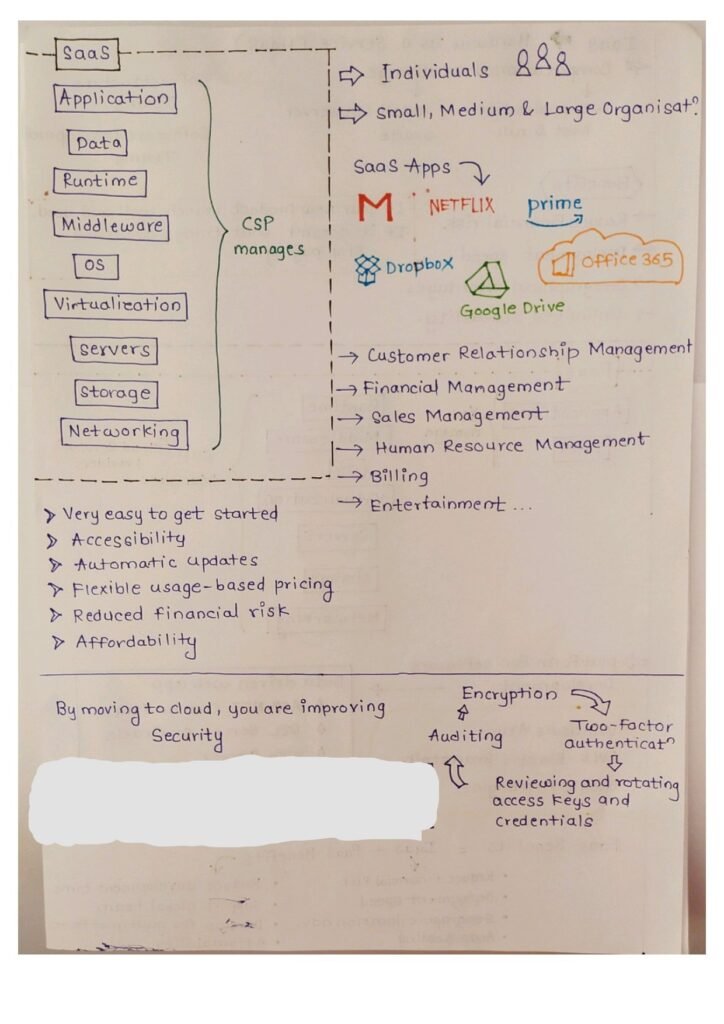 SaaS
Application
Data
Runtime
Middleware
OS
Virtualization
Servers
Storage
Networking
CSP
manages
Individuals
Small, Medium & Large Organisatn
SaaS Apps
M
NETFLIX
prime
Dropbox
Google Drive
Office 365
→ Customer Relationship Management
→ Financial Management
→ Sales Management
→ Human Resource Management
→ Billing
→ Entertainment ...
Very easy to get started
Accessibility
Automatic updates
Flexible usage-based pricing
Reduced financial risk
Affordability
By moving to cloud, you are improving
Security
Encryption
Two-Factor
authenticatn
Reviewing and rotating
access keys and
credentials
Auditing